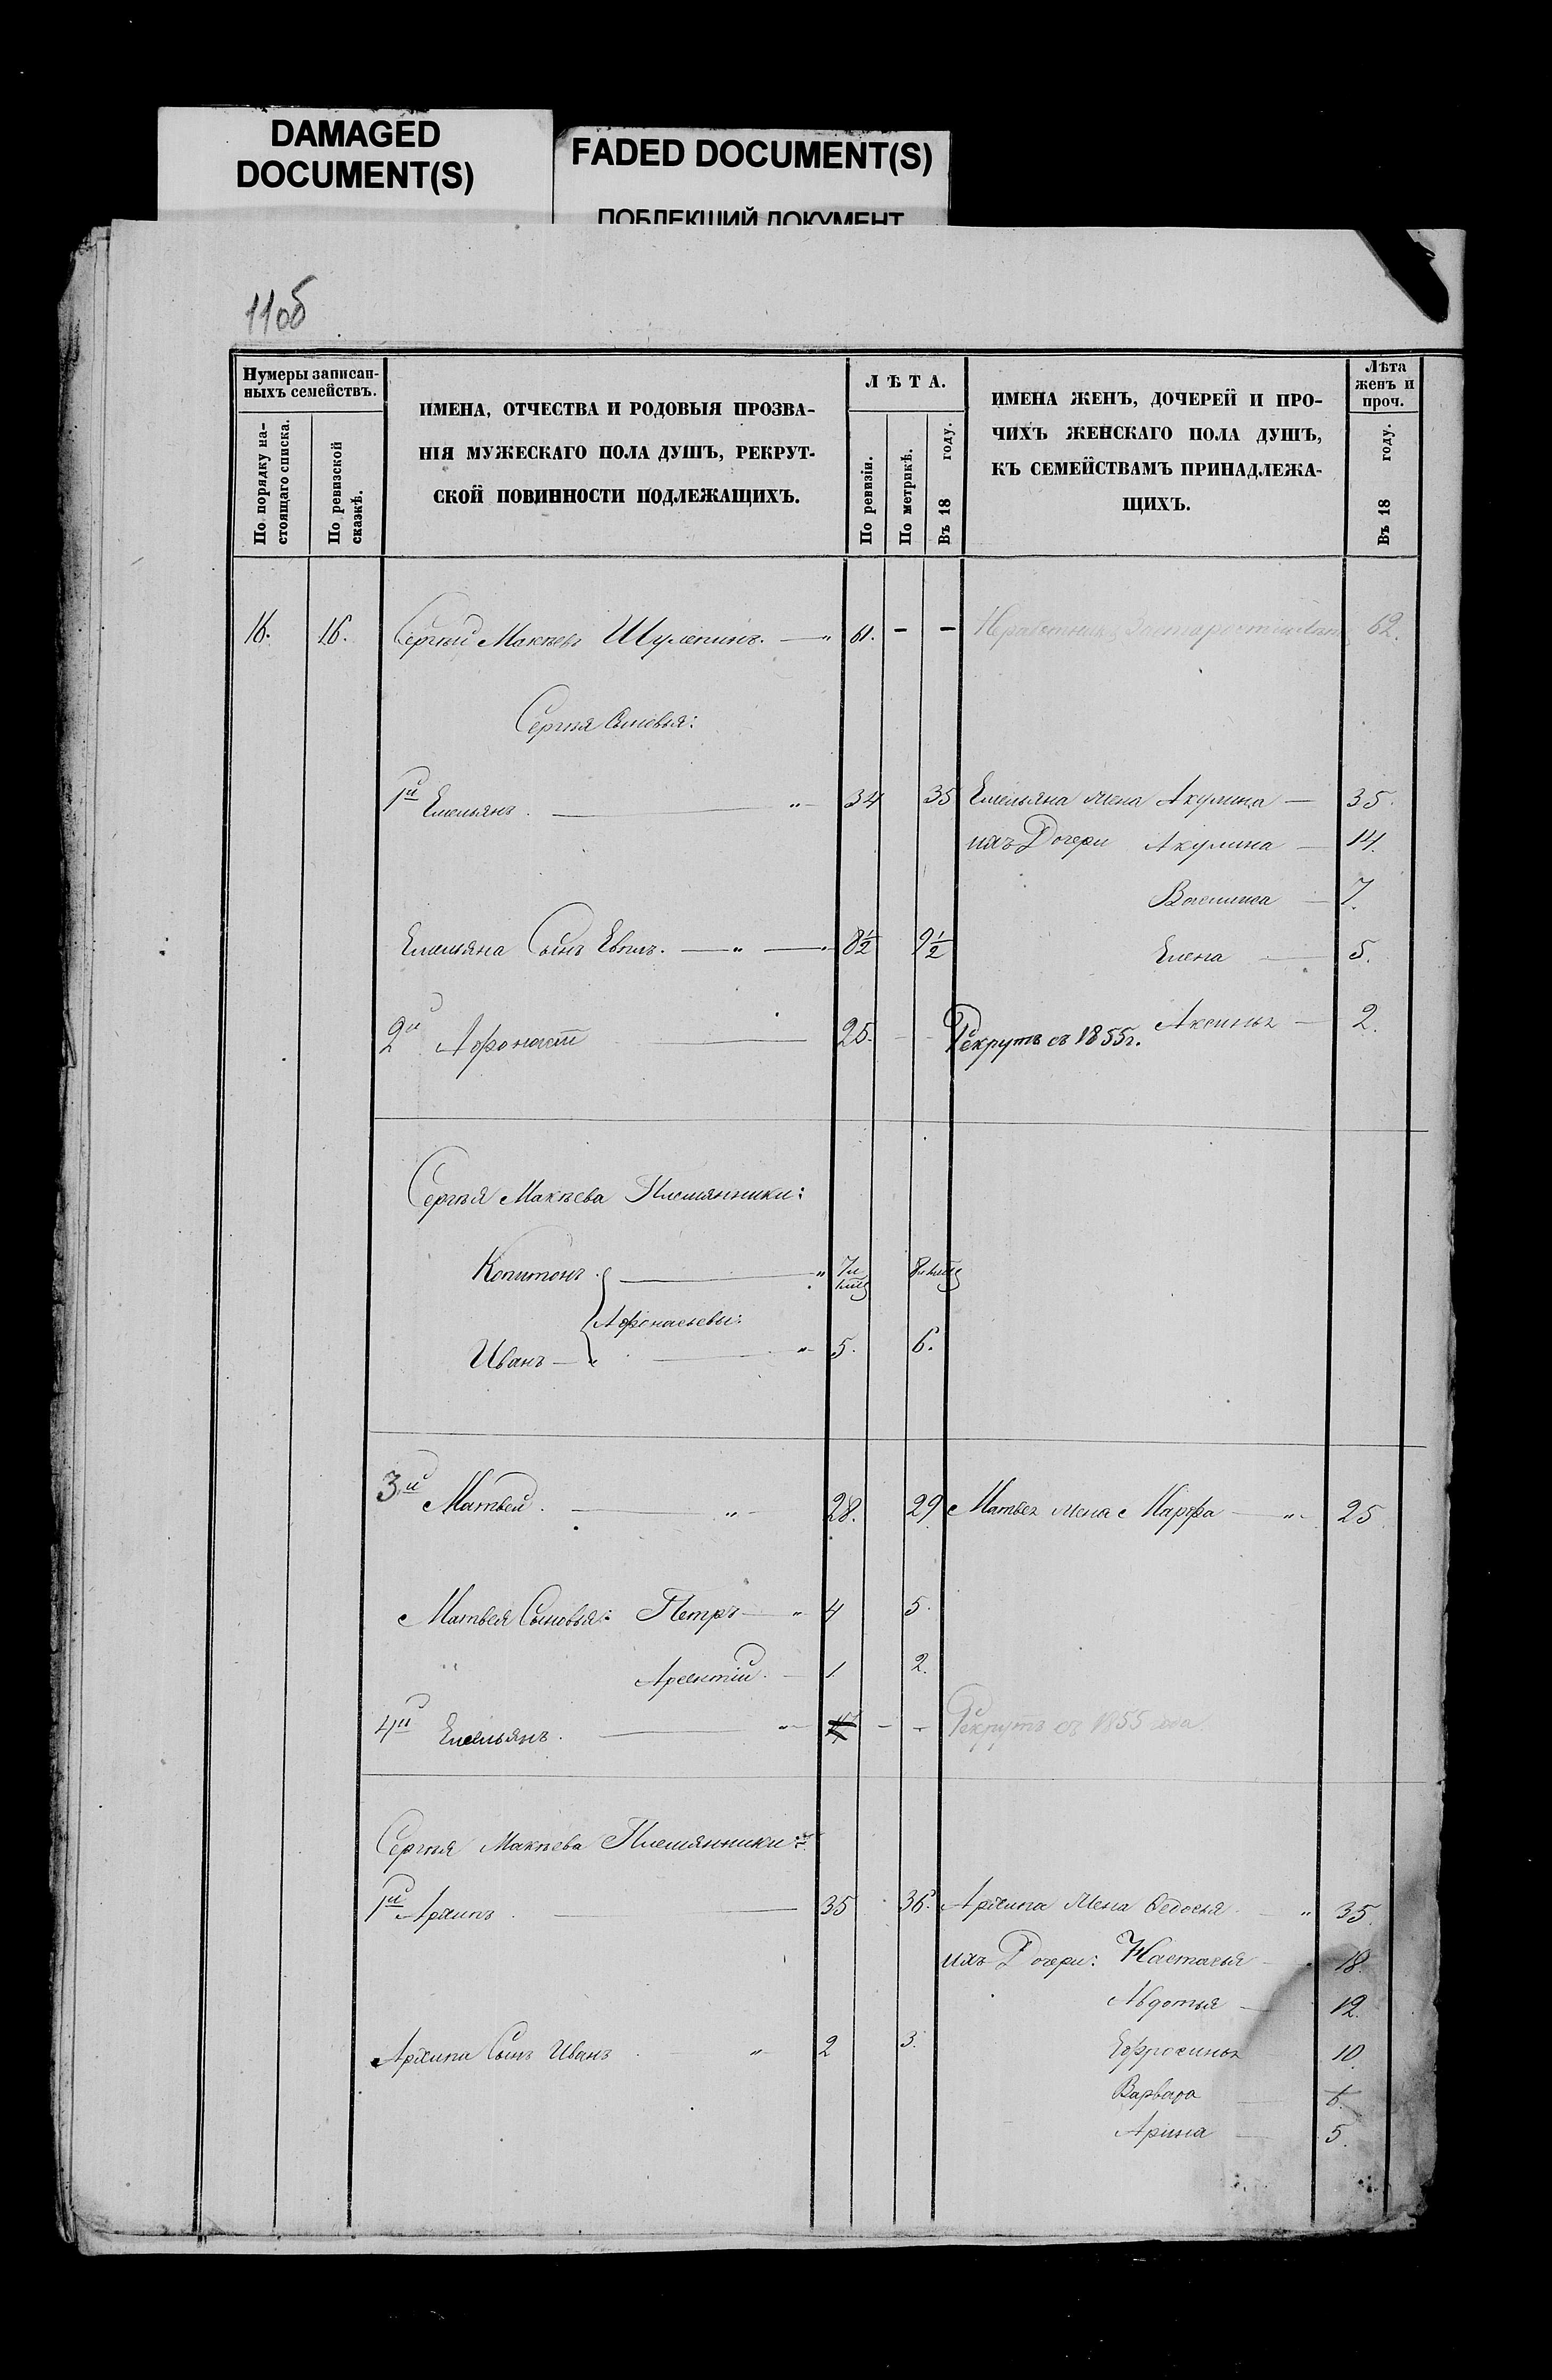 DAMAGED
DOCUMENT(S)
FADED DOCUMENT(S)
ПОБЛЕКШИЙ ДОКУМЕНТ
11об
Нумеры записан-
ныхъ семействъ.
По порядку на-
стоящаго списка.
По ревизской
сказкѣ.
ИМЕНА, ОТЧЕСТВА И РОДОВЫЯ ПРОЗВА-
НІЯ МУЖЕСКАГО ПОЛА ДУШЪ, РЕКРУТ-
СКОЙ ПОВИННОСТИ ПОДЛЕЖАЩИХЪ.
ЛѢТА.
По ревизіи.
По метрикѣ.
Въ 18 году.
ИМЕНА ЖЕНЪ, ДОЧЕРЕЙ И ПРО-
ЧИХЪ ЖЕНСКАГО ПОЛА ДУШЪ,
КЪ СЕМЕЙСТВАМЪ ПРИНАДЛЕЖА-
ЩИХЪ.
Лѣта
женъ и
проч.
Въ 18 году.
16. 16. Сергѣй Макѣевъ Шулепинъ. — 61. – – 62.
Сергѣя Сыновья:
1й Емельянъ. — 34 35 Емельяна Жена Акулина — 35.
ихъ Дочери Акулина — 14.
7.
Емельяна Сынъ — 8½ 9½
Елена — 5.
Аксинья — 2.
2й Афонасій — 25. Рекрутъ съ 1855г.
Сергѣя Макѣева Племянники:
Копитонъ —
Афонасьевы:
Иванъ — 5. 6.
3й Матвей. — 28. 29 Матвея Жена Марфа — 25
Матвея Сыновья: Петръ — 4 5.
Арсентій. — 1. 2.
4й Емельянъ. — – – Рекрутъ съ 1855 года.
Сергѣя Макѣева Племянники:
1й Архипъ. — 35 36. Архипа Жена Ѳедосья — 35.
ихъ Дочери: Настасья — 18.
Авдотья — 12.
Архипа Сынъ Иванъ — 2 3. Ефросинья 10.
Варвара 6.
Арина — 5.